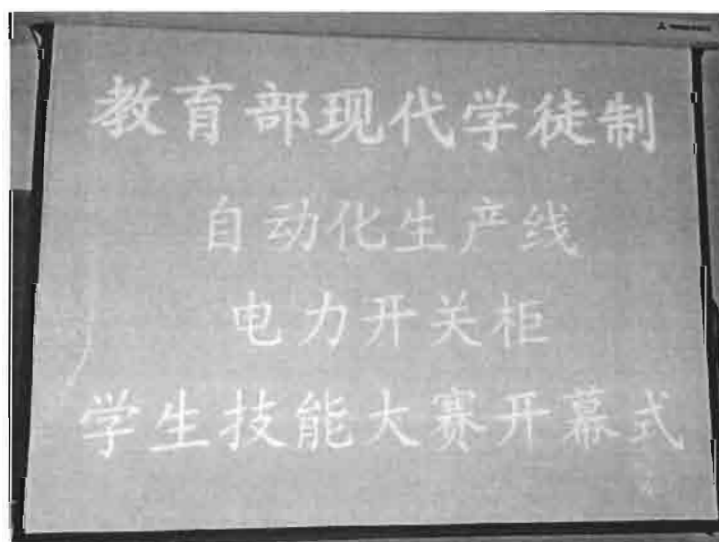 教育部现代学徒制
自动化生产线
电力开关柜
学生技能大赛开幕式